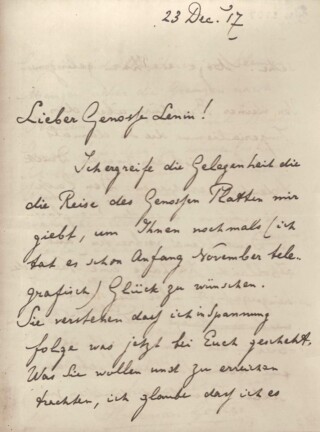 23 Dec. 17
Lieber Genosse Lenin!
Ich ergreife die Gelegenheit die
die Reise des Genossen Platten mir
giebt, um Ihnen nochmals (ich
tat es schon Anfang November tele-
grafisch) Glück zu wünschen.
Sie verstehen dass ich in Spannung
folge was jetzt bei Euch geschieht.
Was Sie wollen und zu erreichen
trachten, ich glaube dass ich es